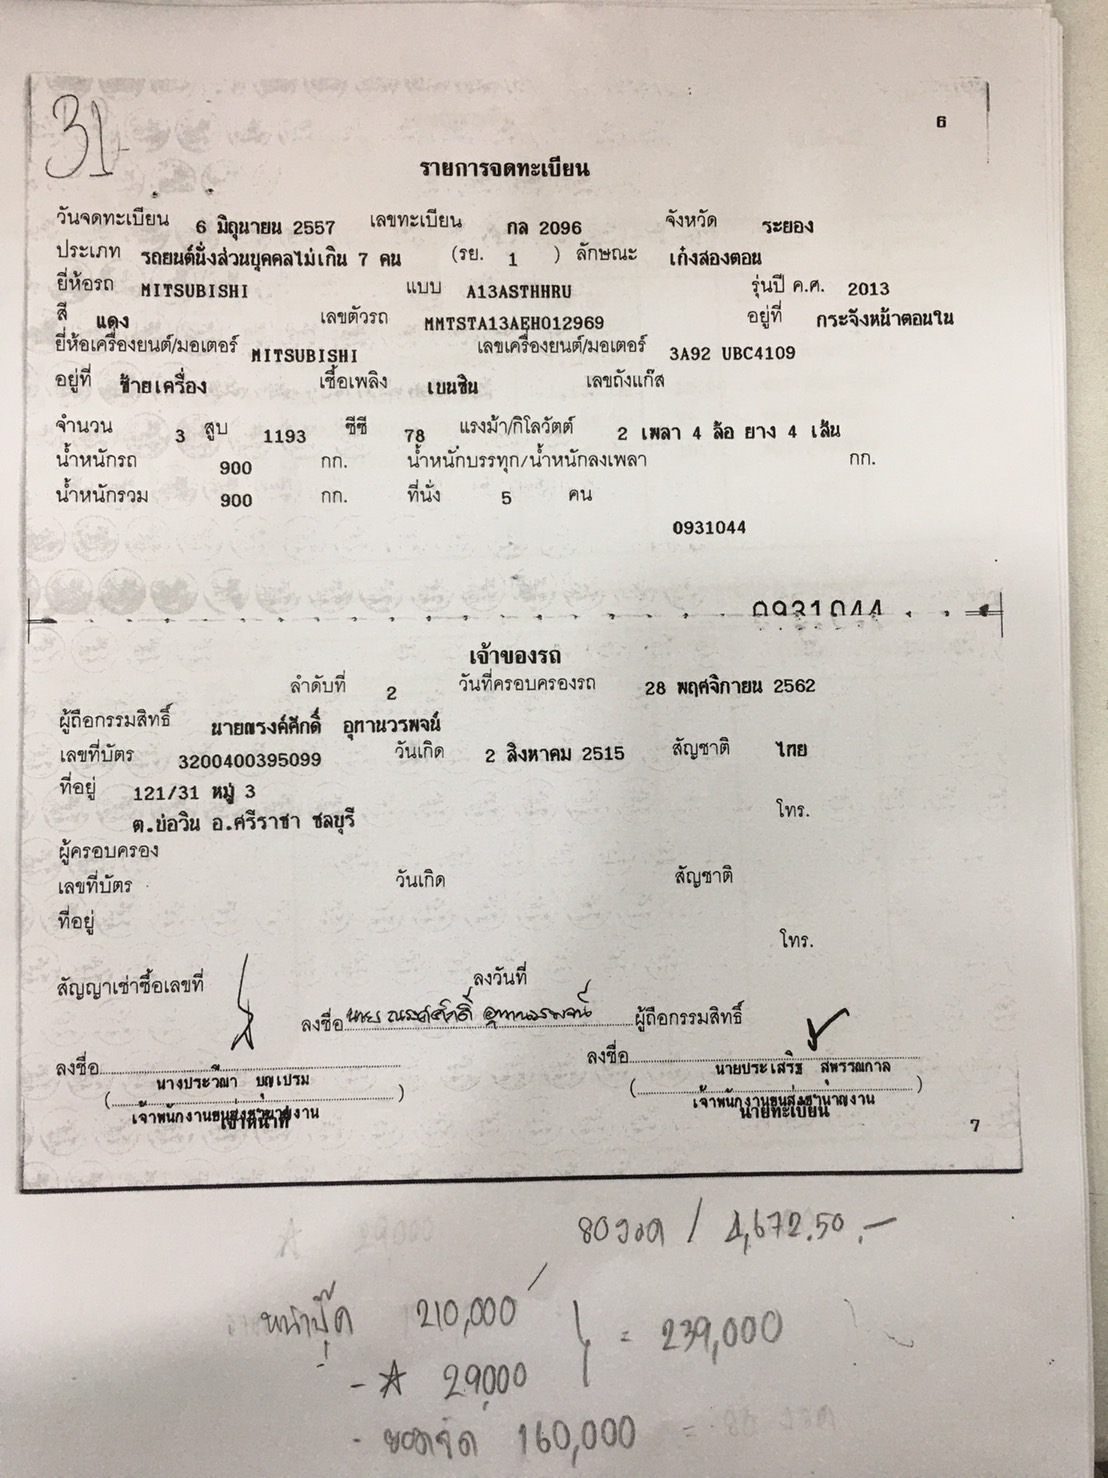 31
6
รายการจดทะเบียน
วันจดทะเบียน 6 มิถุนายน 2557 เลขทะเบียน กล 2096 จังหวัด ระยอง
ประเภท รถยนต์นั่งส่วนบุคคลไม่เกิน 7 คน (รย. 1 ) ลักษณะ เก๋งสองตอน
ยี่ห้อรถ MITSUBISHI แบบ A13ASTHHRU รุ่นปี ค.ศ. 2013
สี แดง เลขตัวรถ MMTSTA13AEH012969 อยู่ที่ กระจังหน้าตอนใน
ยี่ห้อเครื่องยนต์/มอเตอร์ MITSUBISHI เลขเครื่องยนต์/มอเตอร์ 3A92 UBC4109
อยู่ที่ ซ้ายเครื่อง เชื้อเพลิง เบนซิน เลขถังแก๊ส
จำนวน 3 สูบ 1193 ซีซี 78 แรงม้า/กิโลวัตต์ 2 เพลา 4 ล้อ ยาง 4 เส้น
น้ำหนักรถ 900 กก. น้ำหนักบรรทุก/น้ำหนักลงเพลา กก.
น้ำหนักรวม 900 กก. ที่นั่ง 5 คน
0931044
0931044
เจ้าของรถ
ลำดับที่ 2 วันที่ครอบครองรถ 28 พฤศจิกายน 2562
ผู้ถือกรรมสิทธิ์ นายณรงค์ศักดิ์ อุทานวรพจน์
เลขที่บัตร 3200400395099 วันเกิด 2 สิงหาคม 2515 สัญชาติ ไทย
ที่อยู่ 121/31 หมู่ 3
ต.บ่อวิน อ.ศรีราชา ชลบุรี โทร.
ผู้ครอบครอง
เลขที่บัตร วันเกิด สัญชาติ
ที่อยู่
โทร.
สัญญาเช่าซื้อเลขที่ ลงวันที่
ลงชื่อ นาย ณรงค์ศักดิ์ อุทานวรพจน์ ผู้ถือกรรมสิทธิ์
ลงชื่อ ลงชื่อ
นางประวีณา บุญเปรม นายประเสริฐ สุพรรณกาล
( ) ( )
เจ้าพนักงานขนส่งชำนาญงาน เจ้าพนักงานขนส่งชำนาญงาน
เจ้าหน้าที่ นายทะเบียน
7
80งวด / 4,672.50.-
หน้าบุ๊ค 210,000
= 239,000
- 29,000
- ยอดจัด 160,000 =